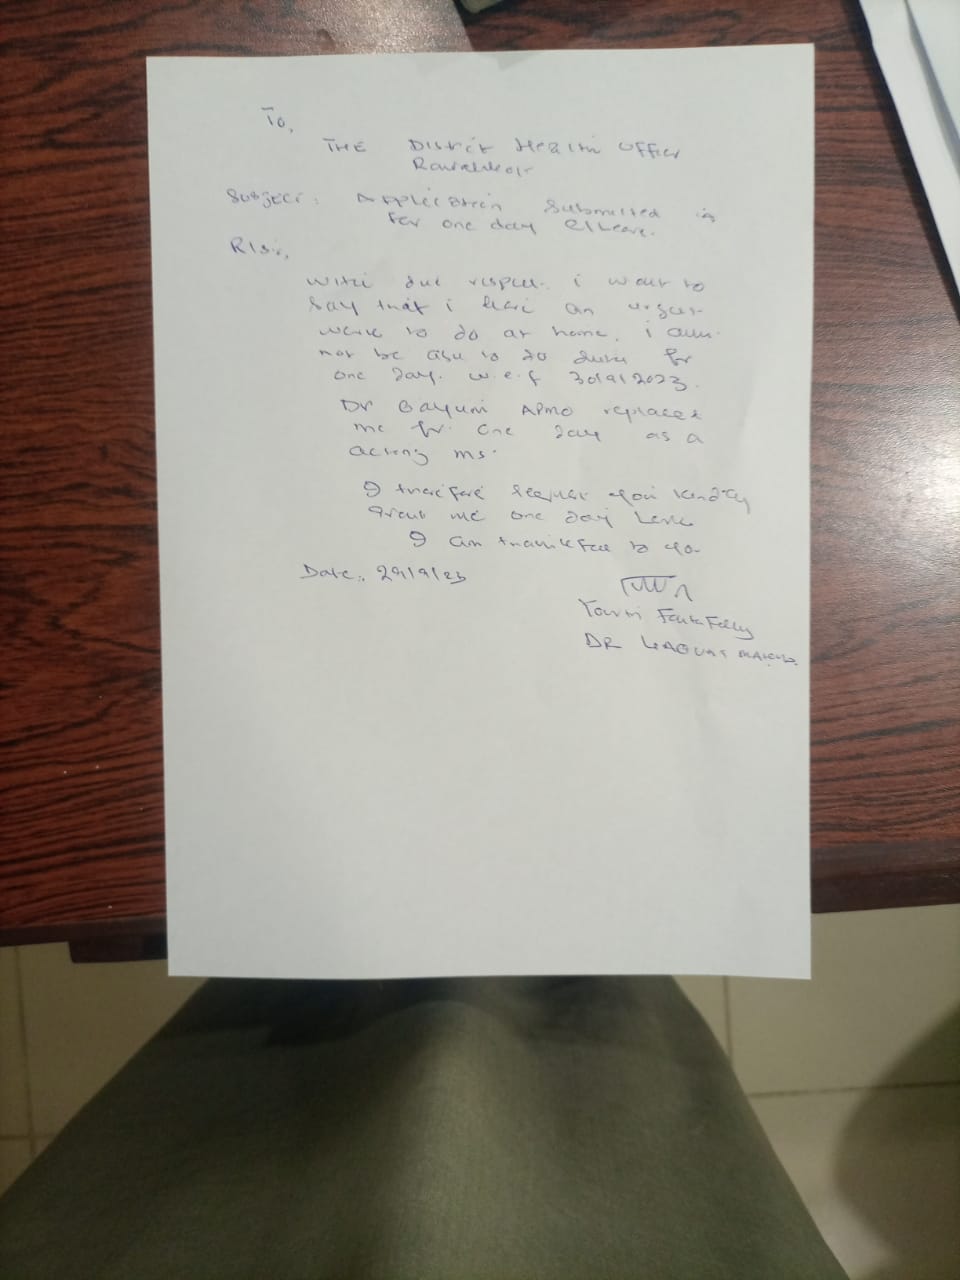 To,
THE District Health Officer
Rawalakot
Subject: Application Submitted is
for one day C/Leave.
R/Sir,
With due respect i want to
say that i have an urgent
work to do at home. i will
not be able to do duty for
one day. w.e.f 30/9/2023.
Dr APMO replaced
me for one day as a
acting ms.
I therefore request you kindly
grant me one day Leave
I am thankful to you
Date: 29/9/23
Yours Faithfully
DR